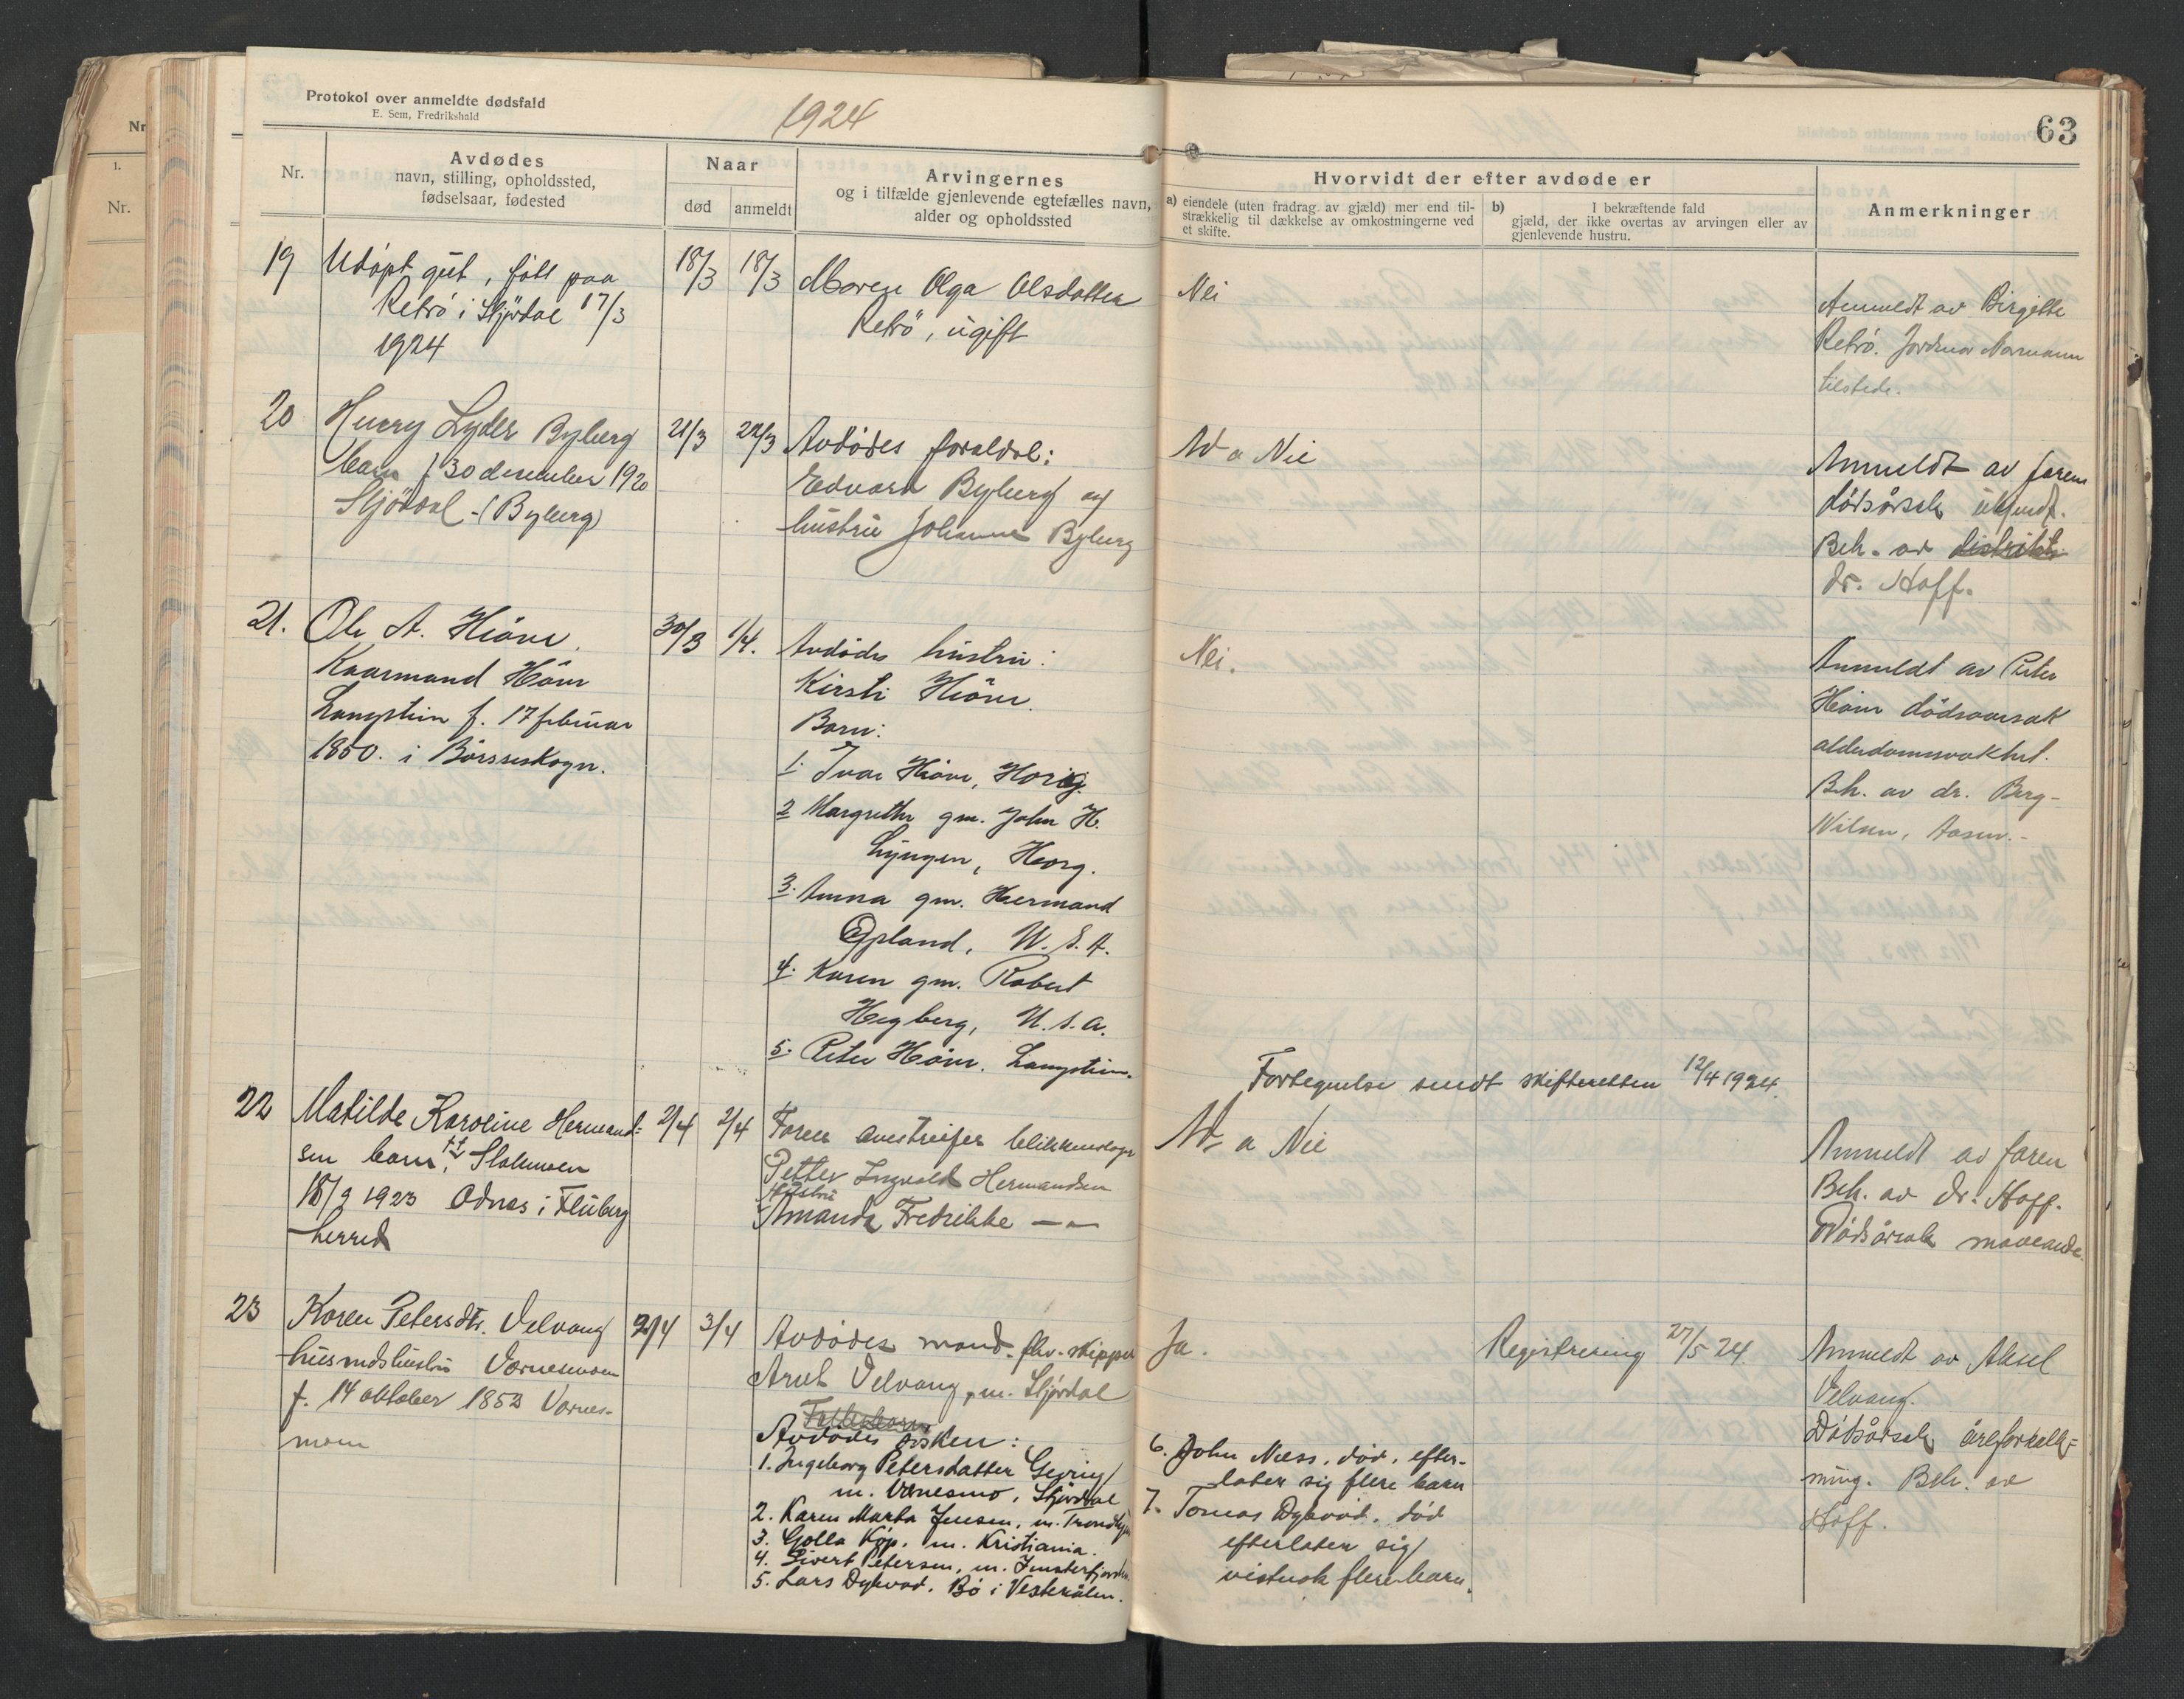 Protokol over anmeldte dødsfald
E. Sem, Fredrikshald
1924
63
Nr.
Avdødes
navn, stilling, opholdssted,
fødselsaar, fødested
Naar
død
anmeldt
Arvingernes
og i tilfælde gjenlevende egtefælles navn,
alder og opholdssted
Hvorvidt der efter avdøde er
a) eiendele (uten fradrag av gjæld) mer end til-
strækkelig til dækkelse av omkostningerne ved
et skifte.
b) I bekræftende fald
gjæld, der ikke overtas av arvingen eller av
gjenlevende hustru.
Anmerkninger
Nr
1.
Nr.
19
Udøpt gut, født paa
Retrö i Stjørdal 17/3
1924
18/3
18/3
Moren Olga Olsdatter
Retrö, ugift
Nei
Anmeldt av Birgitte
Retrö. Jordmor
tilstede.
20
Harry Lyder Byberg
barn f 30 desember 1920
Stjördal - (Byberg)
21/3
22/3
Avdødes foreldre:
Edvard Byberg og
hustru Johanna Byberg
Ad a Nei
Anmeldt av faren
dødsårsak ukjendt.
Beh. av distrikts
dr. Hoff.
21.
Ole A. Höine.
Kaarmand Höine
Langstein f. 17 februar
1850. i Börseskogn.
30/3
1/4.
Avdødes hustru:
Kirsti Höine.
Barn:
1. Ivar Höine, Horg.
2 Margrethe gm. John H.
Lyngen, Horg.
3. Anna gm. Hermand
Opland, U. S. A.
4. Karen gm. Robert
Hegberg, U. S. A.
5. Peter Höine. Langstein.
Nei.
Anmeldt av Peter
Höine dödsaarsak
alderdomssvakhet.
Beh. av dr. Berg-
Nilsen, Aasen.-
Fortegnelse sendt skifteretten 12/4 1924.
22
Matilde Karoline Hermand-
sen barn,
18/9 1923 Odnes i Fluberg
herred
2/4
2/4
Faren blikkenslager
Petter Ingvald Hermandsen
Hustru
Amanda Fredrikke —"—
Ad a Nei
Anmeldt av faren
Beh. av dr. Hoff.
Dødsårsak
23
Karen Petersdtr. Velvang
husmdshustru Værnesmoen
f. 14 oktober 1853 Værnes-
moen
2/4
3/4
Avdødes mand. fhv. skipper
Arnt Velvang, m. Stjørdal
Avdødes søsken:
1. Ingeborg Petersdatter Gevring
m. Værnesmo, Stjørdal
2. Karen Marta Jensen, m. Trondhjem
3. Golla Köp. m. Kristiania.
4. Sivert Petersen, m.
5. Lars Dybvad. Bö i Vesterålen.
Ja.
6. John Næss. død. efter-
later sig flere barn
7. Tomas Dybvad. död
efterlater sig
vistnok flere barn.
Registrering 27/5 24.
Anmeldt av Aksel
Velvang.
Dödsårsak åreforkalk-
ning. Beh. av
Hoff.